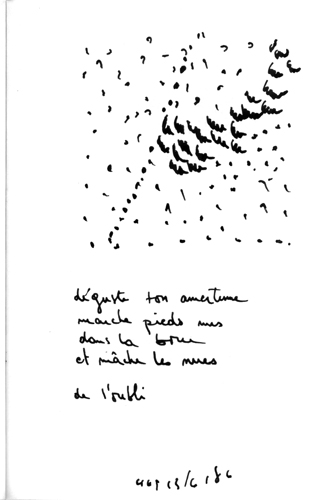 déguste ton amertume
marche pieds nus
dans la boue
et mâche les mures
de l'oubli
13/6/86